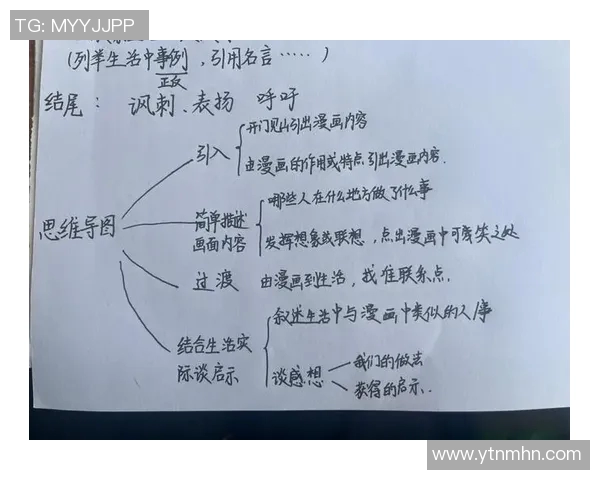 TG: MYYJJPP
(列举生活中事例，引用名言……)
正反
结尾： 讽刺、表扬 呼吁
思维导图
引入
开门见山引出漫画内容
由漫画的作用或特点引出漫画内容.
简单描述
画面内容
哪些人在什么地方做了什么事
发挥想象或联想，点出漫画中可笑之处
过渡 由漫画到生活，找准联系点.
结合生活实
际谈启示
叙述生活中与漫画中类似的人事
谈感想
我们的做法
获得的启示.
www.ytnmhn.com